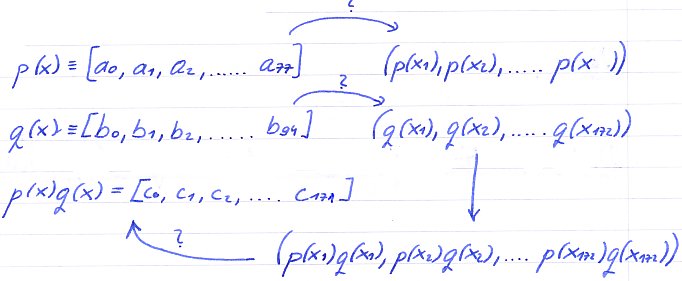 ?
p(x) ≡ [a0, a1, a2, ...... a77] (p(x1), p(x2), ..... p(x ))
?
q(x) ≡ [b0, b1, b2, ...... b94] (q(x1), q(x2), ..... q(x172))
p(x)q(x) = [c0, c1, c2, .... c171]
?
(p(x1)q(x1), p(x2)q(x2), .... p(x172)q(x172))